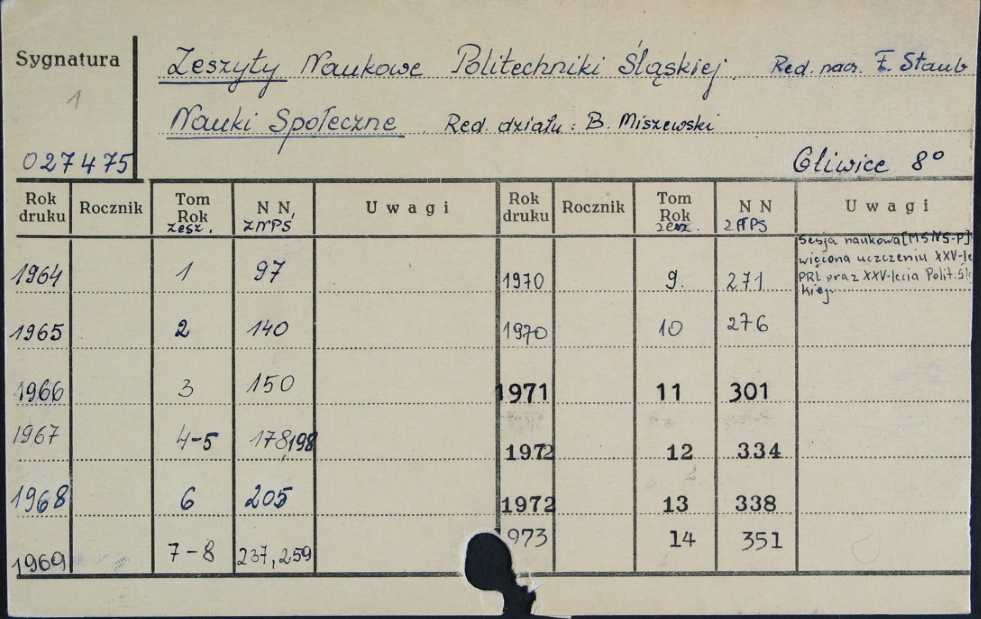 Sygnatura
1
027475
Zeszyty Naukowe Politechniki Śląskiej. Red. nacz. F. Staub
Nauki Społeczne. Red. działu: B. Miszewski
Gliwice 8°
Rok druku Rocznik Tom Rok zesz. N N ZNPŚ Uwagi Rok druku Rocznik Tom Rok zesz. N N ZNPŚ Uwagi
1964 1 97 1970 9. 271 Sesja naukowa [MSNS-P]
więcona uczczeniu XXV-le
PRL oraz XXV-lecia Polit. Ślą
kiej.
1965 2 140 1970 10 276
1966 3 150 1971 11 301
1967 4-5 178,198 1972 12 334
1968 6 205 1972 13 338
1969 7-8 237,259 973 14 351